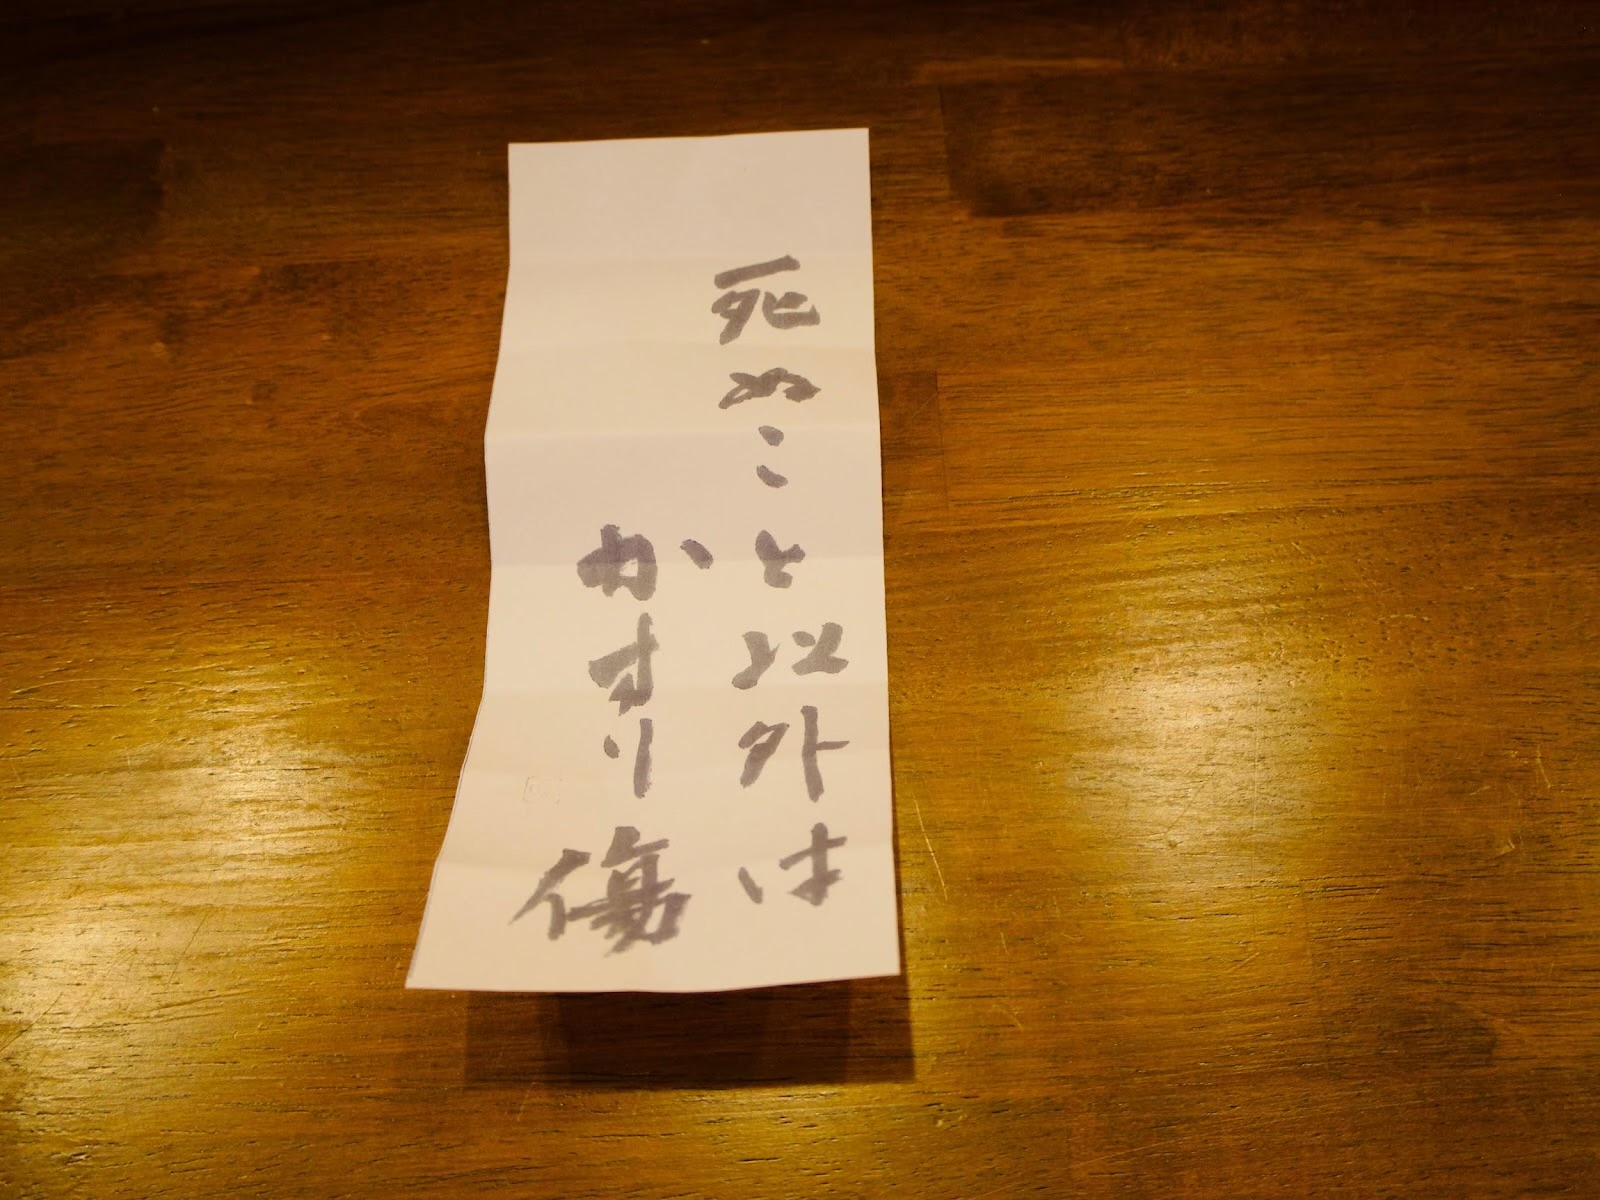 死ぬこと以外は
かすり傷